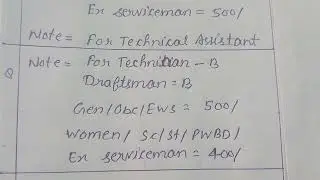 Ex serviceman = 500/
Note = For Technical Assistant
Q Note = For Technician - B
Draftsman = B
Gen/Obc/Ews = 500/
Women/Sc/St/PWBD/
Ex serviceman = 400/